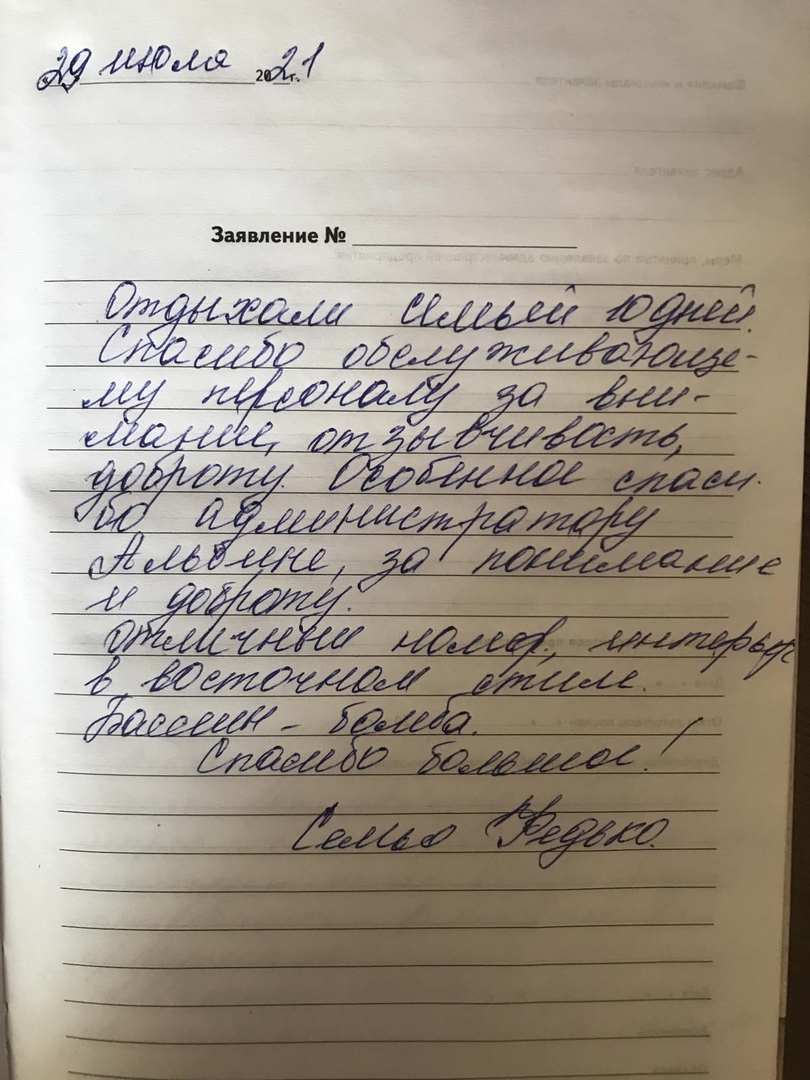 29 июля 2021 г.
Заявление № 
Отдыхали семьёй 10 дней.
Спасибо обслуживающе-
му персоналу за вни-
мание, отзывчивость,
доброту. Особенное спаси-
бо администратору
Альбине, за понимание
и доброту.
Отличный номер, интерьер
в восточном стиле.
Бассейн - бомба.
Спасибо большое!
Семья Редько.